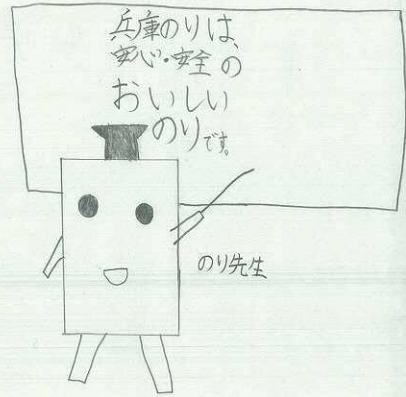 兵庫のりは、
安心・安全の
おいしい
のりです。
のり先生